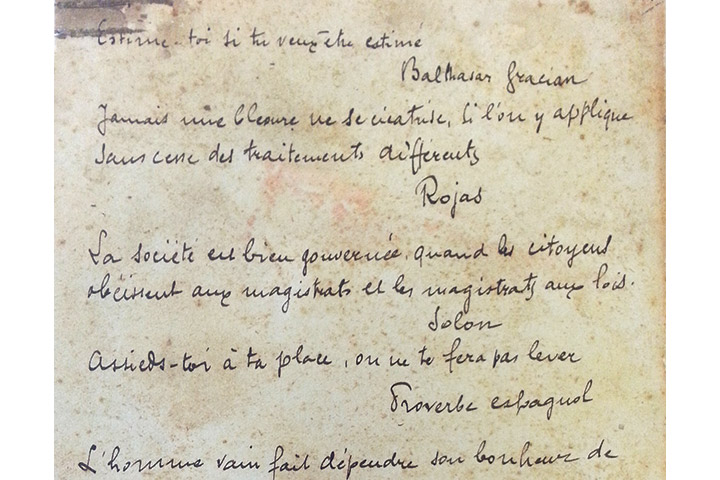 Estime-toi si tu veux être estimé
Balthasar Gracian
Jamais une blessure ne se cicatrise, si l'on y applique
sans cesse des traitements différents
Rojas
La société est bien gouvernée, quand les citoyens
obéissent aux magistrats et les magistrats aux lois.
Solon
Assieds-toi à ta place, on ne te fera pas lever
Proverbe espagnol
L'homme vain fait dépendre son bonheur de